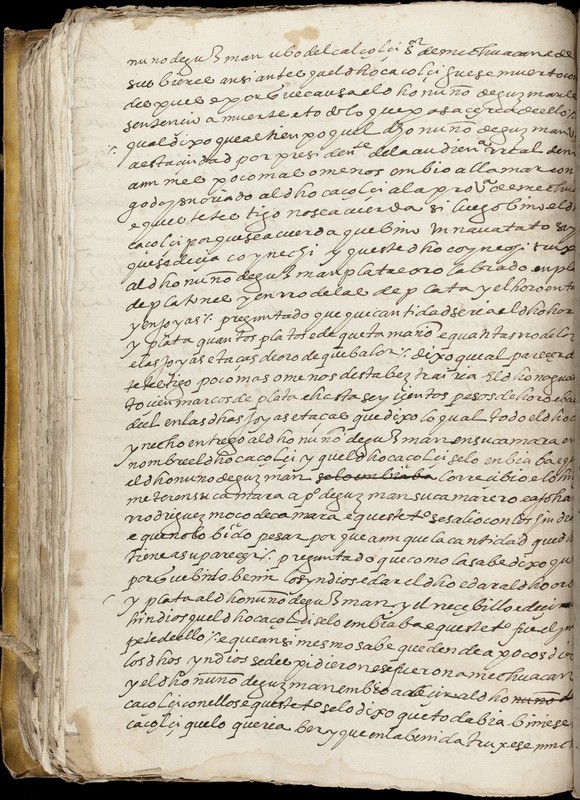 nuño deguzman ubo del calcolçi s^or de mechuacan e de
sus bienes ansi antes quel dho caçolçi fuese muerto co
despues e por que causa el dho nuño deguzman le
sentençio a muerte e todo lo que pasa çerca dello
qual dixo que al tienpo quel dho nuño de guzman
a esta çiudad por presidente del audien^a rreal de
mes poco mas o menos enbio a llamar con
godoy al dho caçolçi a la pro^a de mechu
e que este testigo no se acuerda si luego bino el d
caçolçi porque se acuerda que bino un navatato suyo
que se deçia coyneçi y queste dho coyneçi truxo
al dho nuño deguzman plata e oro labrado en pla
de platones y en rrodelas de plata y el horo en ta
y en joyas preguntado que que cantidad seria el dho hor
y plata quantos platos e de que tamaño e quantas rrodelas
e las joyas e tacas de oro de que balor dixo qual pareçer d
testigo poco mas o menos desta bez trairia el dho
toçien marcos de plata e hasta seysçientos pesos de horo e ba
del en las dhas joyas e tacas que dixo lo qual todo el dho
yneçho entrego al dho nuño deguzman en su camara en
nonbre el dho caçolçi y quel dho caçolçi se lo enbiaba e q
el dho nuño deguzman selo enbiaba lo rreçibio e lo hi
meter en su camara a p^o deguzman su camarero e a
rrodriguez moço de camara e queste t^o se salio con los yndios
e que no lo bido pesar porque aun que la cantidad que d
tiene a su pareçer preguntado que como la sabe dixo que
porque bido benir los yndios e dar el dho e dar al dho oro
y plata al dho nuño deguzman y el rreçebillo e deçir
h indios quel dho caçolçi se lo enbiaba e queste t^o fue el yn
prete dello e que ansi mesmo sabe que dende a pocos di
los dhos yndios se despidieron e se fueron a mechuacan
y el dho nuño deguzman enbio a deçir al dho nuño d
caçolçi con ellos e queste t^o se lo dixo que todabia biniese
caçolçi que lo queria ber y que en la benida truxese